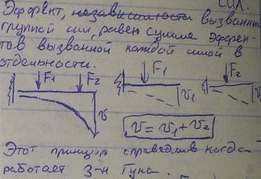 сил.
Эффект, независимости вызванный
группой сил, равен сумме эффек-
тов вызванной каждой силой в
отдельности.
F₁ F₂ F₁ F₂
v v₁ v₂
v = v₁ + v₂
Этот принцип справедлив когда
работает з-н Гука.